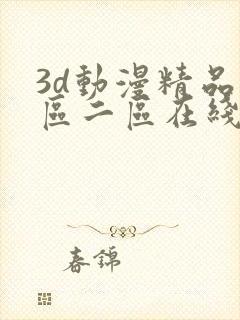 3d動漫精品
區二區在綫
春錦